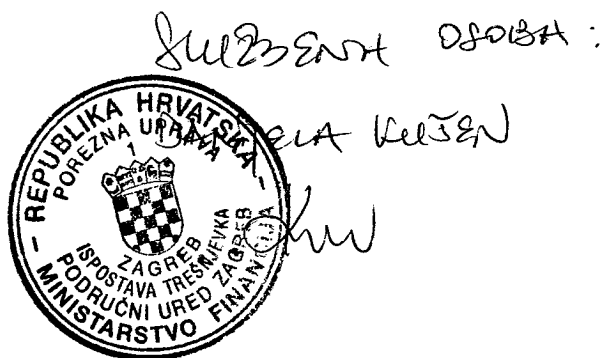 SLUŽBENA OSOBA:
KUŠEN
REPUBLIKA HRVATSKA
MINISTARSTVO FINANCIJA
POREZNA UPRAVA
1
PODRUČNI URED ZAGREB
ISPOSTAVA TREŠNJEVKA
ZAGREB